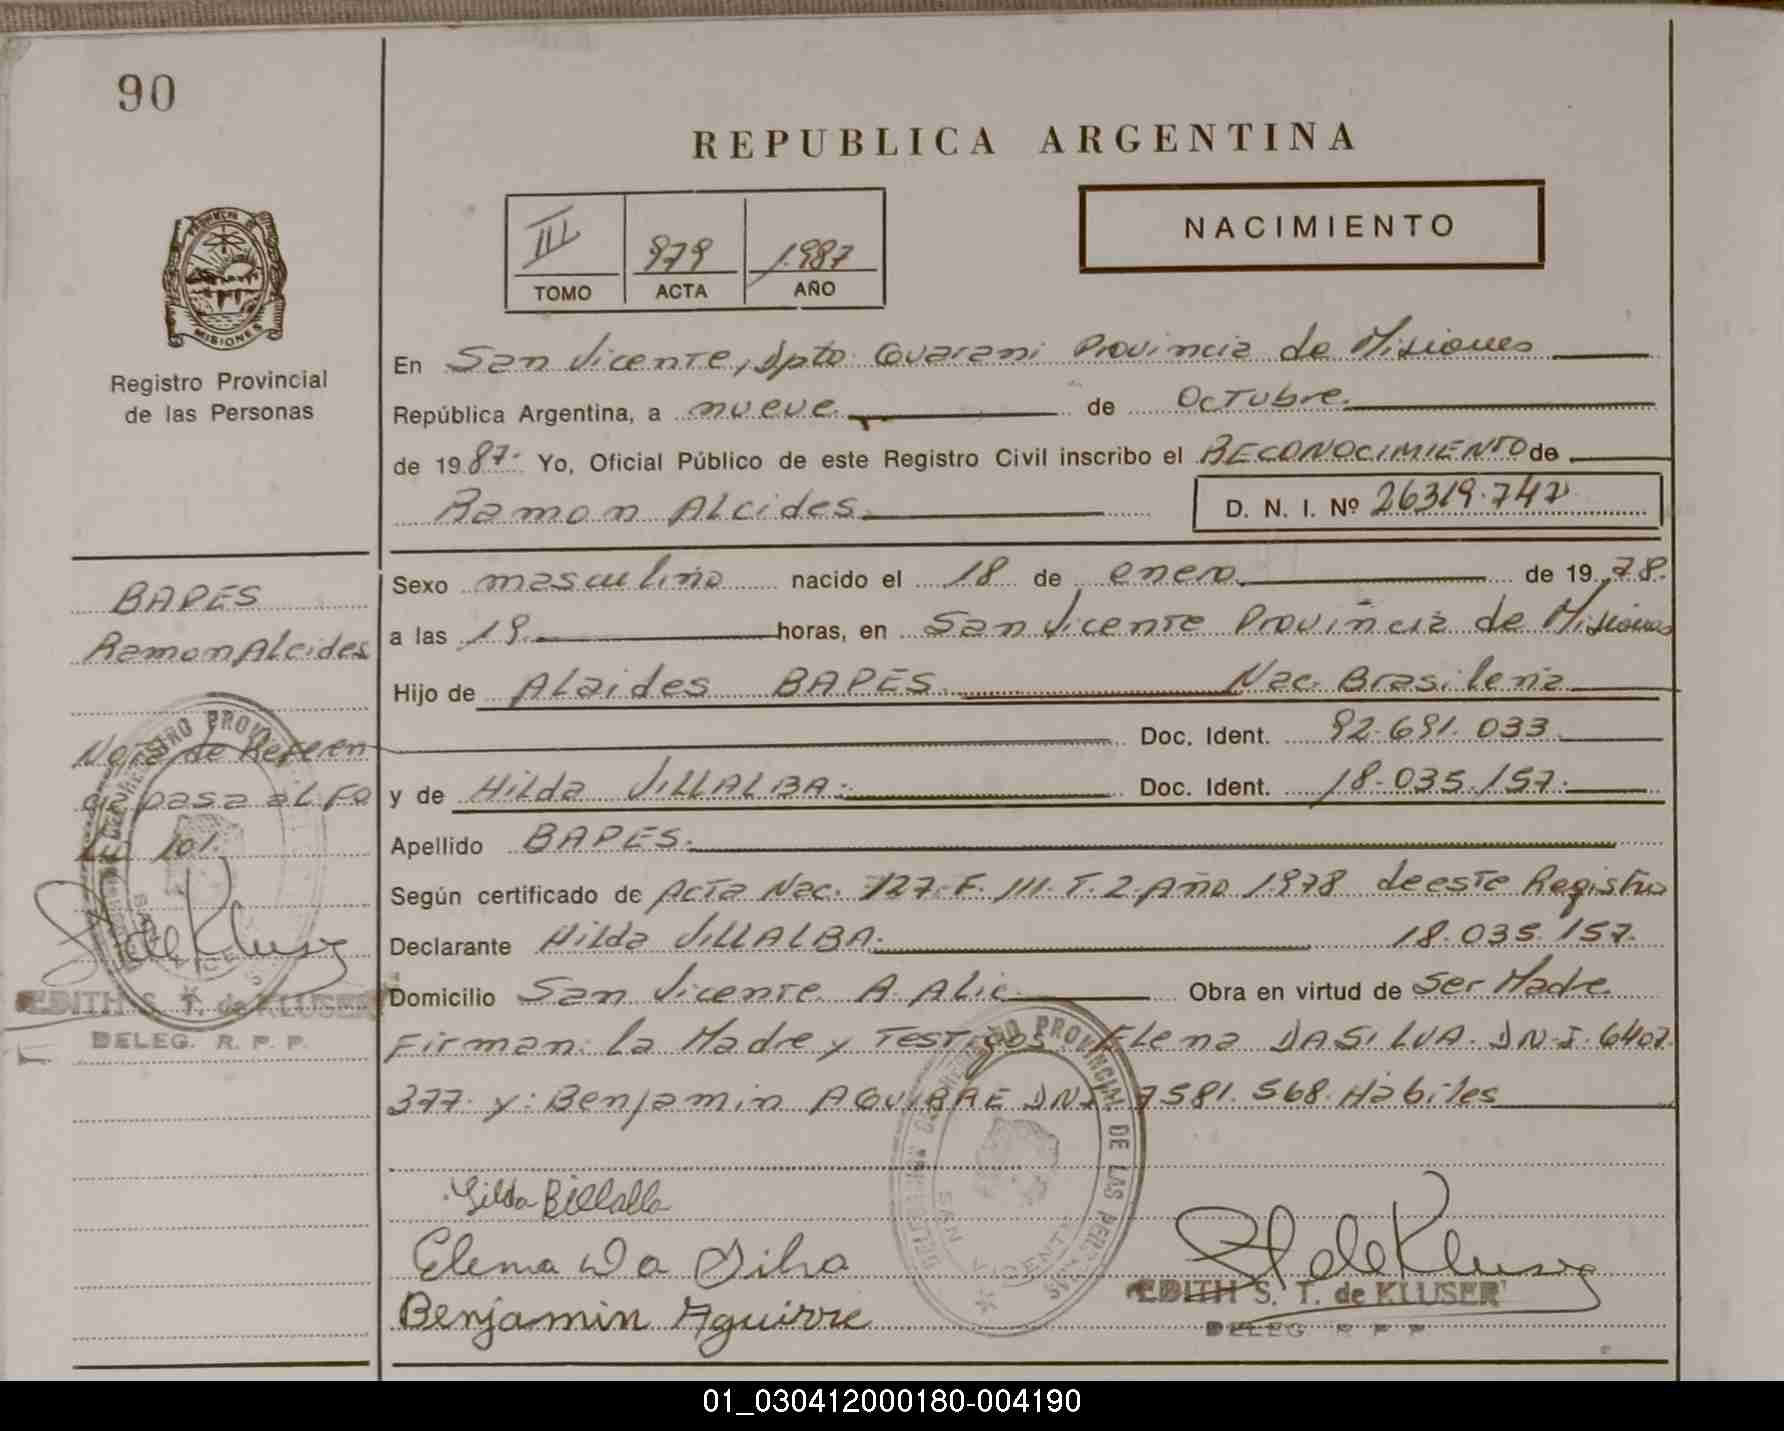 90
REPUBLICA ARGENTINA
PROVINCIA DE
MISIONES
Registro Provincial
de las Personas
III 979 1.987
TOMO ACTA AÑO
NACIMIENTO
En San Vicente, Dpto. Guarani Provincia de Misiones
República Argentina, a nueve. de Octubre.
de 19 87. Yo, Oficial Público de este Registro Civil inscribo el RECONOCIMIENTO de
Ramon Alcides
D. N. I. Nº 26319.747
Sexo masculino nacido el 18 de enero de 19 78.
a las 19. horas, en San Vicente Provincia de Misiones
Hijo de Alaides BAPES Nac. Brasileña
Doc. Ident. 92.691.033
y de Hilda VillALBA. Doc. Ident. 18.035.157.
Apellido BAPES.
Según certificado de Acta Nac. 127. F. III. T. 2. Año 1.978 de este Registro
Declarante Hilda VillALBA. 18.035.157.
Domicilio San Vicente A. Alic Obra en virtud de Ser Madre.
Firman: la Madre y Testigos Elena DASILVA. D.N.I. 6407.
377. y: Benjamin AGUIRRE DNI 7581.568. Habiles
Hilda Billalba
Elena Da Silva
Benjamin Aguirre
EDITH S. T. de KLUSER
DELEG. R. P. P.
BAPES
Ramon Alcides
Nota de Referen
cia pasa al Fo
lio 101.
EDITH S. T. de KLUSER
DELEG. R. P. P.
01_030412000180-004190